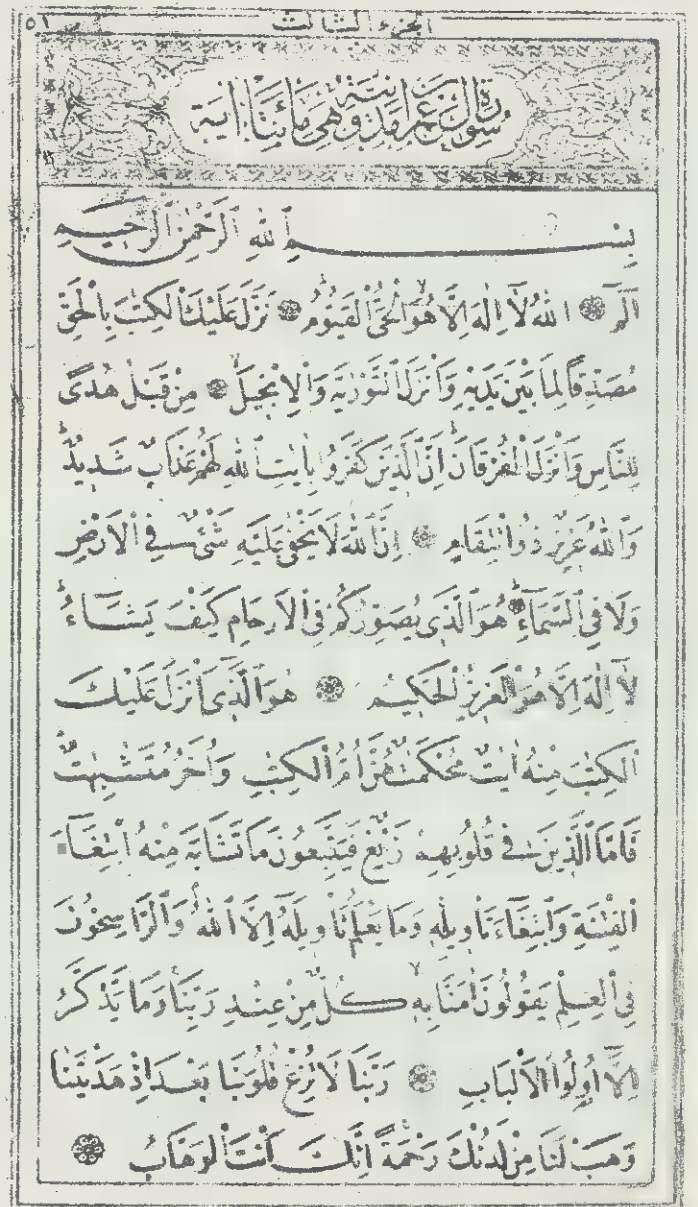 الجزء الثالث ٥١
سُورَةُ اٰلِ عِمْرٰنَ مَدَنِيَّةٌ وَهِيَ مِائَتَا اٰيَةٍ
بِسْمِ ٱللّٰهِ ٱلرَّحْمٰنِ ٱلرَّحِيمِ
الٓمٓ ۝ اَللّٰهُ لَٓا اِلٰهَ اِلَّا هُوَ ٱلْحَىُّ ٱلْقَيُّومُ ۝ نَزَّلَ عَلَيْكَ ٱلْكِتٰبَ بِٱلْحَقِّ
مُصَدِّقًا لِمَا بَيْنَ يَدَيْهِ وَاَنْزَلَ ٱلتَّوْرٰيةَ وَٱلْاِنْجِيلَ ۝ مِنْ قَبْلُ هُدًى
لِلنَّاسِ وَاَنْزَلَ ٱلْفُرْقَانَ اِنَّ ٱلَّذِينَ كَفَرُوا بِاٰيٰتِ ٱللّٰهِ لَهُمْ عَذَابٌ شَدِيدٌ
وَٱللّٰهُ عَزِيزٌ ذُو ٱنْتِقَامٍ ۝ اِنَّ ٱللّٰهَ لَا يَخْفٰى عَلَيْهِ شَىْءٌ فِى ٱلْاَرْضِ
وَلَا فِى ٱلسَّمَٓاءِ ۝ هُوَ ٱلَّذِى يُصَوِّرُكُمْ فِى ٱلْاَرْحَامِ كَيْفَ يَشَٓاءُ
لَٓا اِلٰهَ اِلَّا هُوَ ٱلْعَزِيزُ ٱلْحَكِيمُ ۝ هُوَ ٱلَّذِٓى اَنْزَلَ عَلَيْكَ
ٱلْكِتٰبَ مِنْهُ اٰيٰتٌ مُحْكَمٰتٌ هُنَّ اُمُّ ٱلْكِتٰبِ وَاُخَرُ مُتَشٰبِهٰتٌ
فَاَمَّا ٱلَّذِينَ فِى قُلُوبِهِمْ زَيْغٌ فَيَتَّبِعُونَ مَا تَشَابَهَ مِنْهُ ٱبْتِغَٓاءَ
ٱلْفِتْنَةِ وَٱبْتِغَٓاءَ تَأْوِيلِهِ وَمَا يَعْلَمُ تَأْوِيلَهُٓ اِلَّا ٱللّٰهُ وَٱلرَّاسِخُونَ
فِى ٱلْعِلْمِ يَقُولُونَ اٰمَنَّا بِهِ كُلٌّ مِنْ عِنْدِ رَبِّنَا وَمَا يَذَّكَّرُ
اِلَّٓا اُولُوا ٱلْاَلْبَابِ ۝ رَبَّنَا لَا تُزِغْ قُلُوبَنَا بَعْدَ اِذْ هَدَيْتَنَا
وَهَبْ لَنَا مِنْ لَدُنْكَ رَحْمَةً اِنَّكَ اَنْتَ ٱلْوَهَّابُ ۝